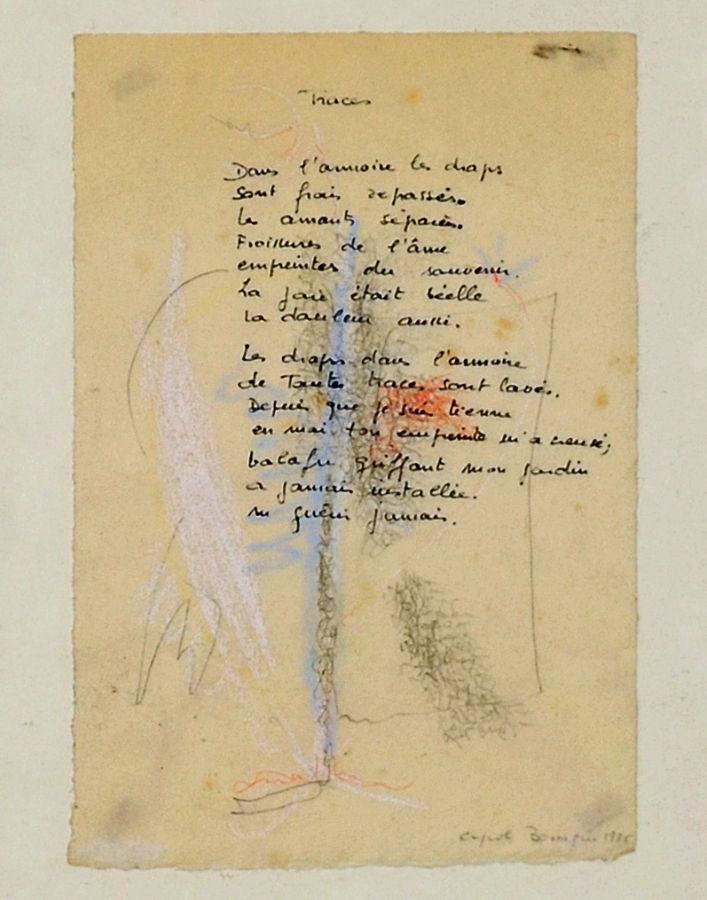 Traces
Dans l'armoire les draps
sont frais repassés.
les amants séparés.
Froissures de l'âme
empreintes du souvenir.
La joie était réelle
la douleur aussi.
Les draps dans l'armoire
de Toutes traces sont lavés.
Depuis que je suis tienne
en moi ton empreinte m'a creusé;
balafre griffant mon jardin
a jamais installée.
ni guérir jamais.
1985